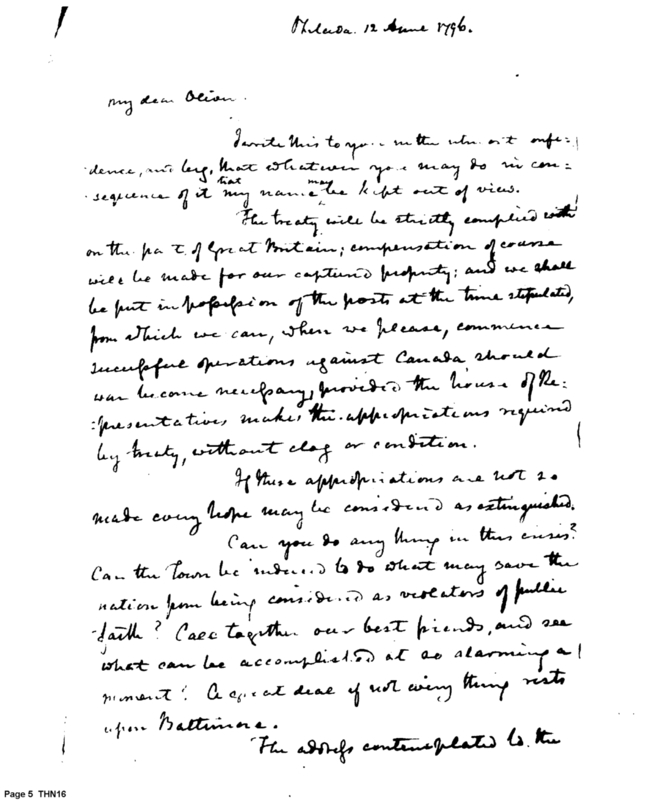 Philada. 12 June 1796.
My dear Oliver.
I write this to you in the utmost confi=
dence, and beg, that whatever you may do in con=
sequence of it that my name may be kept out of view.
The treaty will be strictly complied with
on the part of Great Britain; compensation of course
will be made for our captured property; and we shall
be put in possession of the posts at the time stipulated,
from which we can, when we please, commence
successful operations against Canada should
war become necessary, provided the house of Re:
:presentatives makes the appropriations required
by treaty, without clog or condition.
If these appropriations are not so
made every hope may be considered as extinguished.
Can you do any thing in this crisis?
Can the Town be induced to do what may save the
nation from being considered as violators of public
faith? Call together our best friends, and see
what can be accomplished at so alarming a
moment! A great deal if not every thing rests
upon Baltimore.
The address contemplated to the
Page 5 THN16